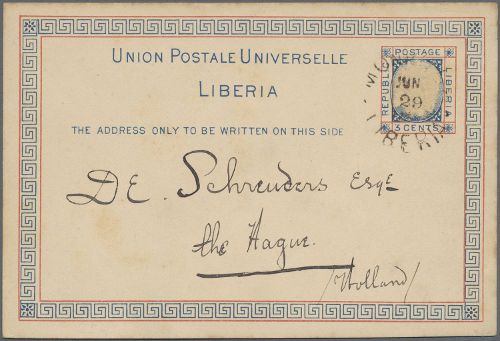 UNION POSTALE UNIVERSELLE
LIBERIA
POSTAGE
REPUBLIC
LIBERIA
3 CENTS
JUN
29
THE ADDRESS ONLY TO BE WRITTEN ON THIS SIDE
DE. Schreuders Esqe
the Hague.
/Holland/